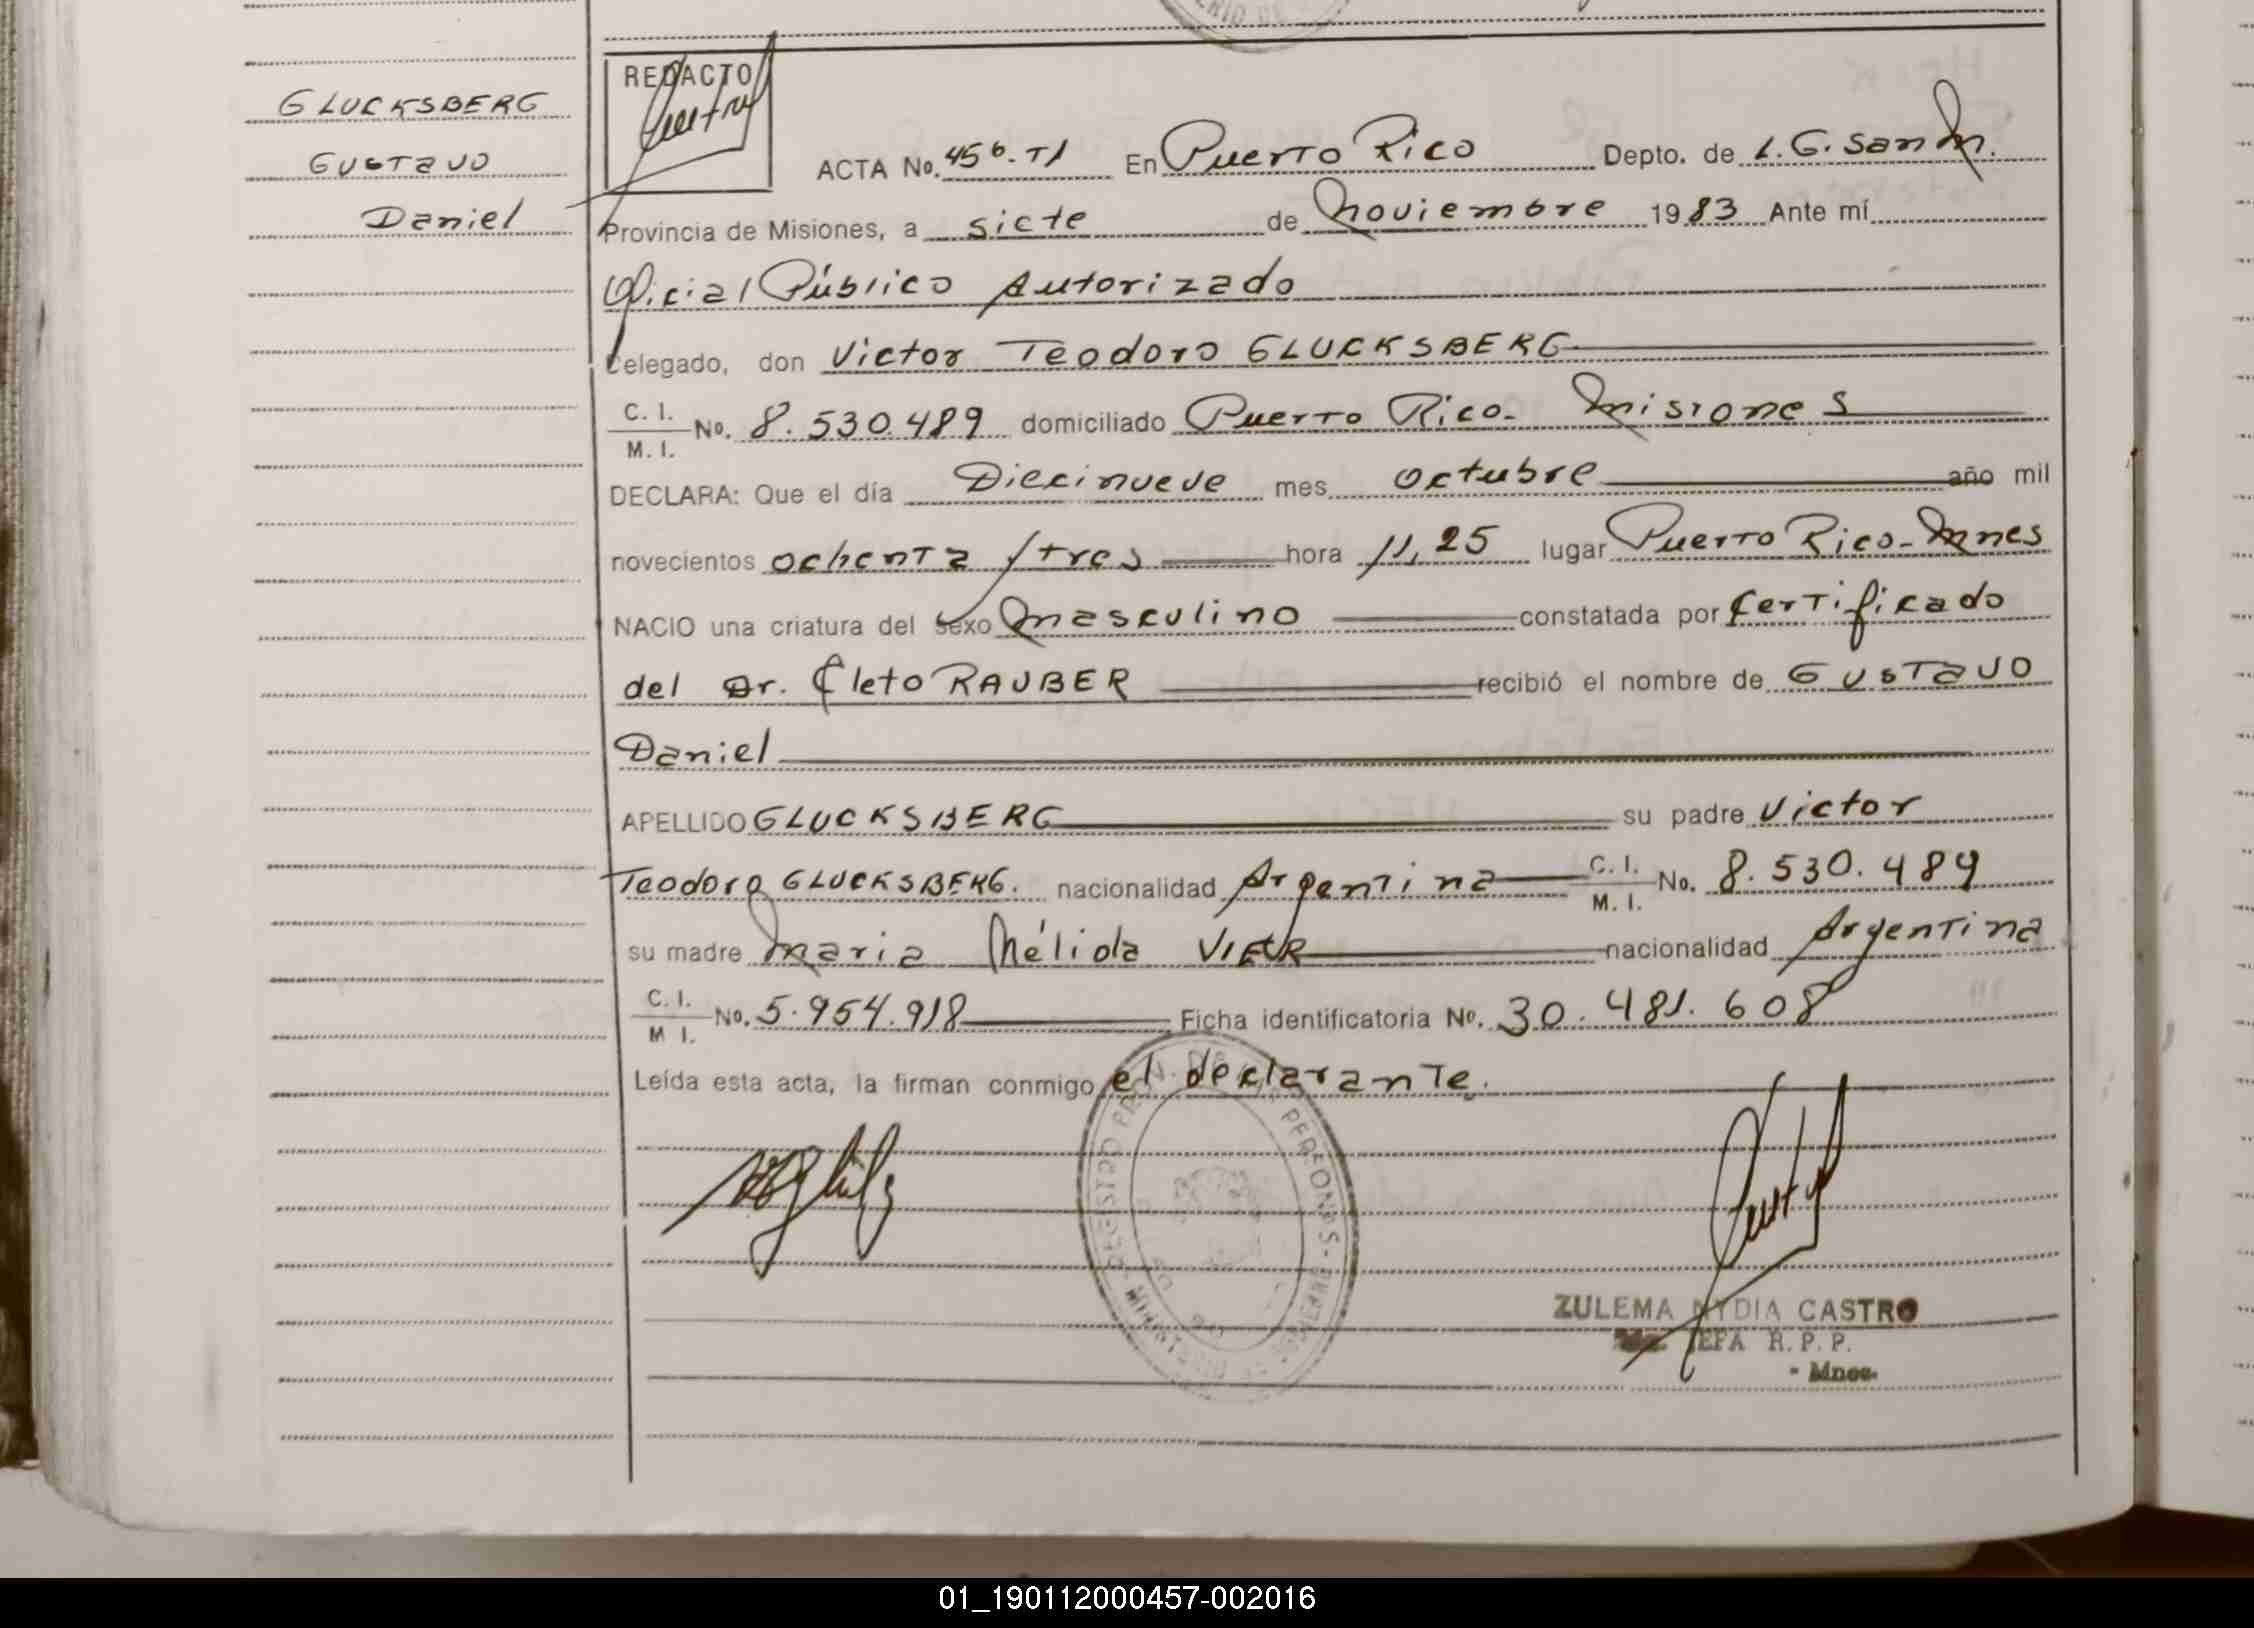 GLUCKSBERG
GUSTAVO
Daniel
REDACTO
ACTA No. 456. T1 En Puerto Rico Depto. de L. G. San M.
Provincia de Misiones, a siete de noviembre 1983 Ante mí
Oficial Público Autorizado
Delegado, don Victor Teodoro GLUCKSBERG
C. I. M. I. No. 8.530.489 domiciliado Puerto Rico- Misiones
DECLARA: Que el día Diecinueve mes octubre año mil
novecientos ochenta y tres hora 11,25 lugar Puerto Rico-Mnes
NACIO una criatura del sexo masculino constatada por Certificado
del Dr. Cleto RAUBER recibió el nombre de GUSTAVO
Daniel
APELLIDO GLUCKSBERG su padre Victor
Teodoro GLUCKSBERG. nacionalidad Argentina C. I. M. I. No. 8.530.489
su madre Maria Nélida VIER nacionalidad Argentina
C. I. M I. No. 5.954.918 Ficha identificatoria No. 30.481.608
Leída esta acta, la firman conmigo el declarante.
ZULEMA NYDIA CASTRO
JEFA R. P. P.
- Mnes.
01_190112000457-002016